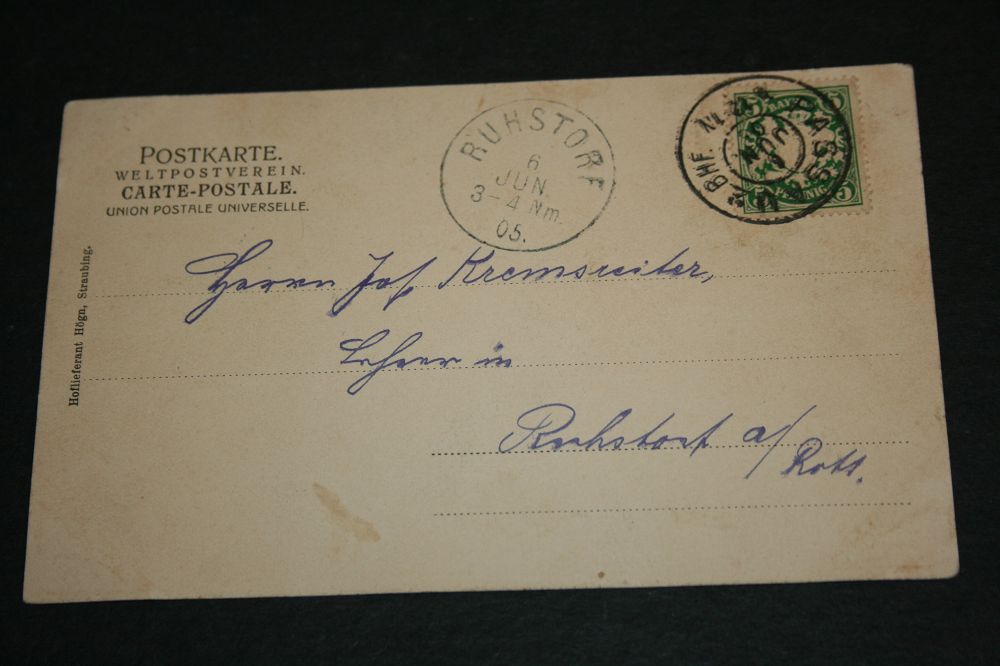 POSTKARTE.
WELTPOSTVEREIN.
CARTE-POSTALE.
UNION POSTALE UNIVERSELLE.
RUHSTORF
6
JUN.
3-4 Nm.
05.
PASSAU
BHF.
JUN
BAYERN
5 5
PFENNIG
5
Hoflieferant Högn, Straubing.
Herrn Jos. Kremsreiter,
Lehrer in
Ruhstorf a/
Rott.